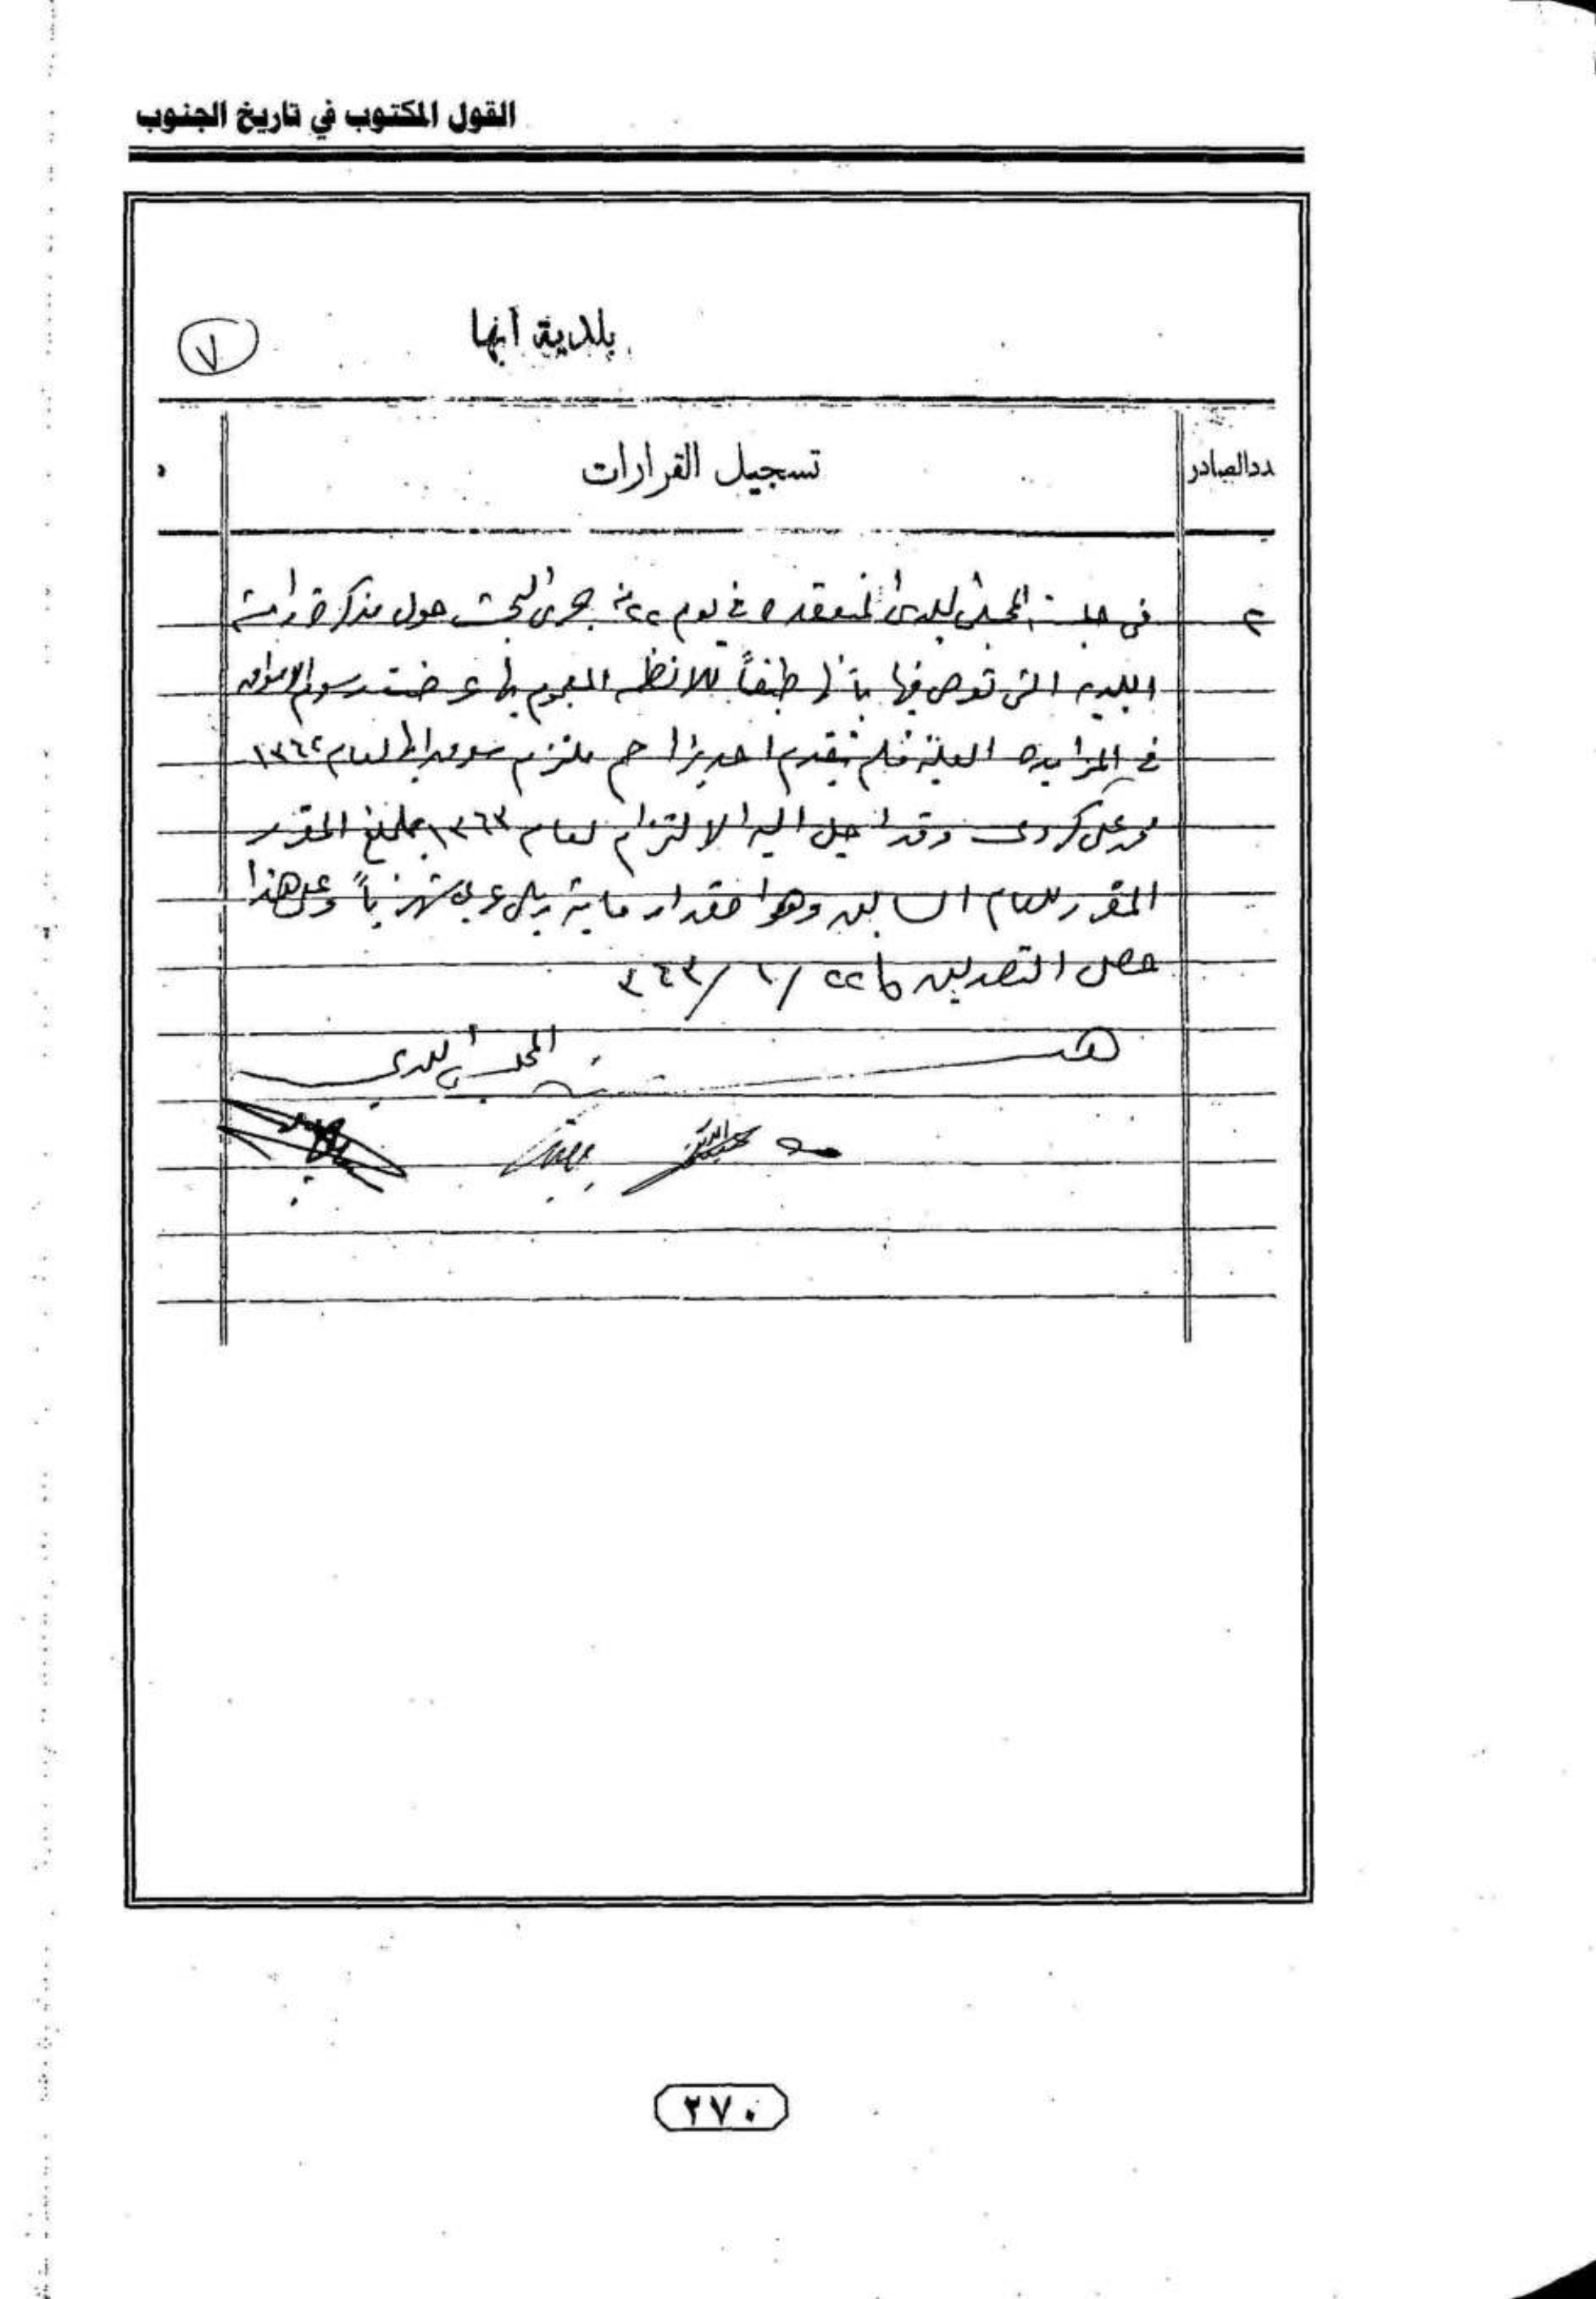 القول المكتوب في تاريخ الجنوب
بلدية أبها
٧
عدد الصادر
تسجيل القرارات
٢
في جلسة المجلس البلدي المنعقده في يوم ٢٢ منه جرى البحث حول مذكرة رآسة
البلديه التي توصي فيها بأنها طبقاً للانظمه المعموم بها عرضت رسوم الاسواق
في المزايده العلنية فلم يتقدم احد يزاحم ملتزم سوق ابها لعام ١٣٦٢
محمد علي كردي وقد احيل اليه الالتزام لعام ١٣٦٣ بمبلغ المقرر
المقرر للعام السابق وهوا مقدار ماية ريال عربي شهرياً وعلى هذا
حصل التصديق ٢٢/ ١/ ٣٦٣
المجلس البلدي
٢٧٠